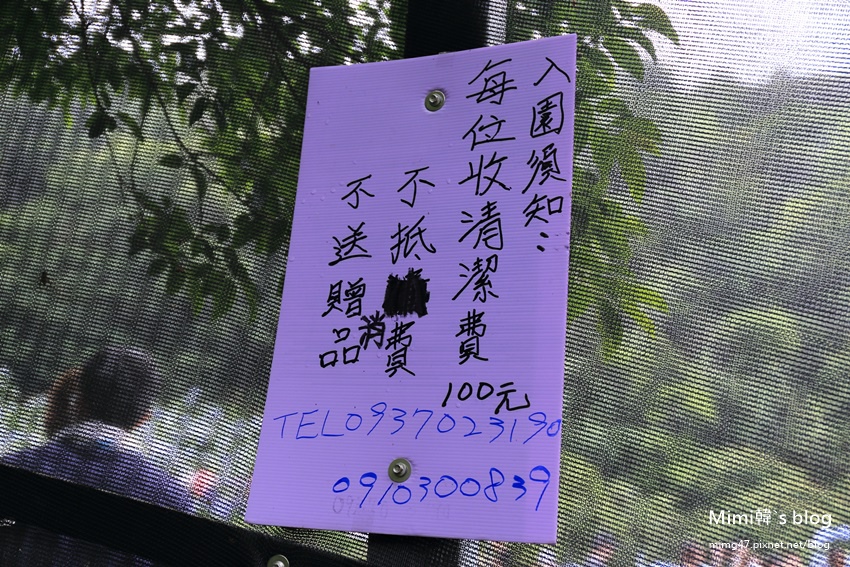 入園須知:
每位收清潔費
100元
不抵消費
不送贈品
TEL0937023190
0910300839
Mimi韓`s blog
mimg47.pixnet.net/blog